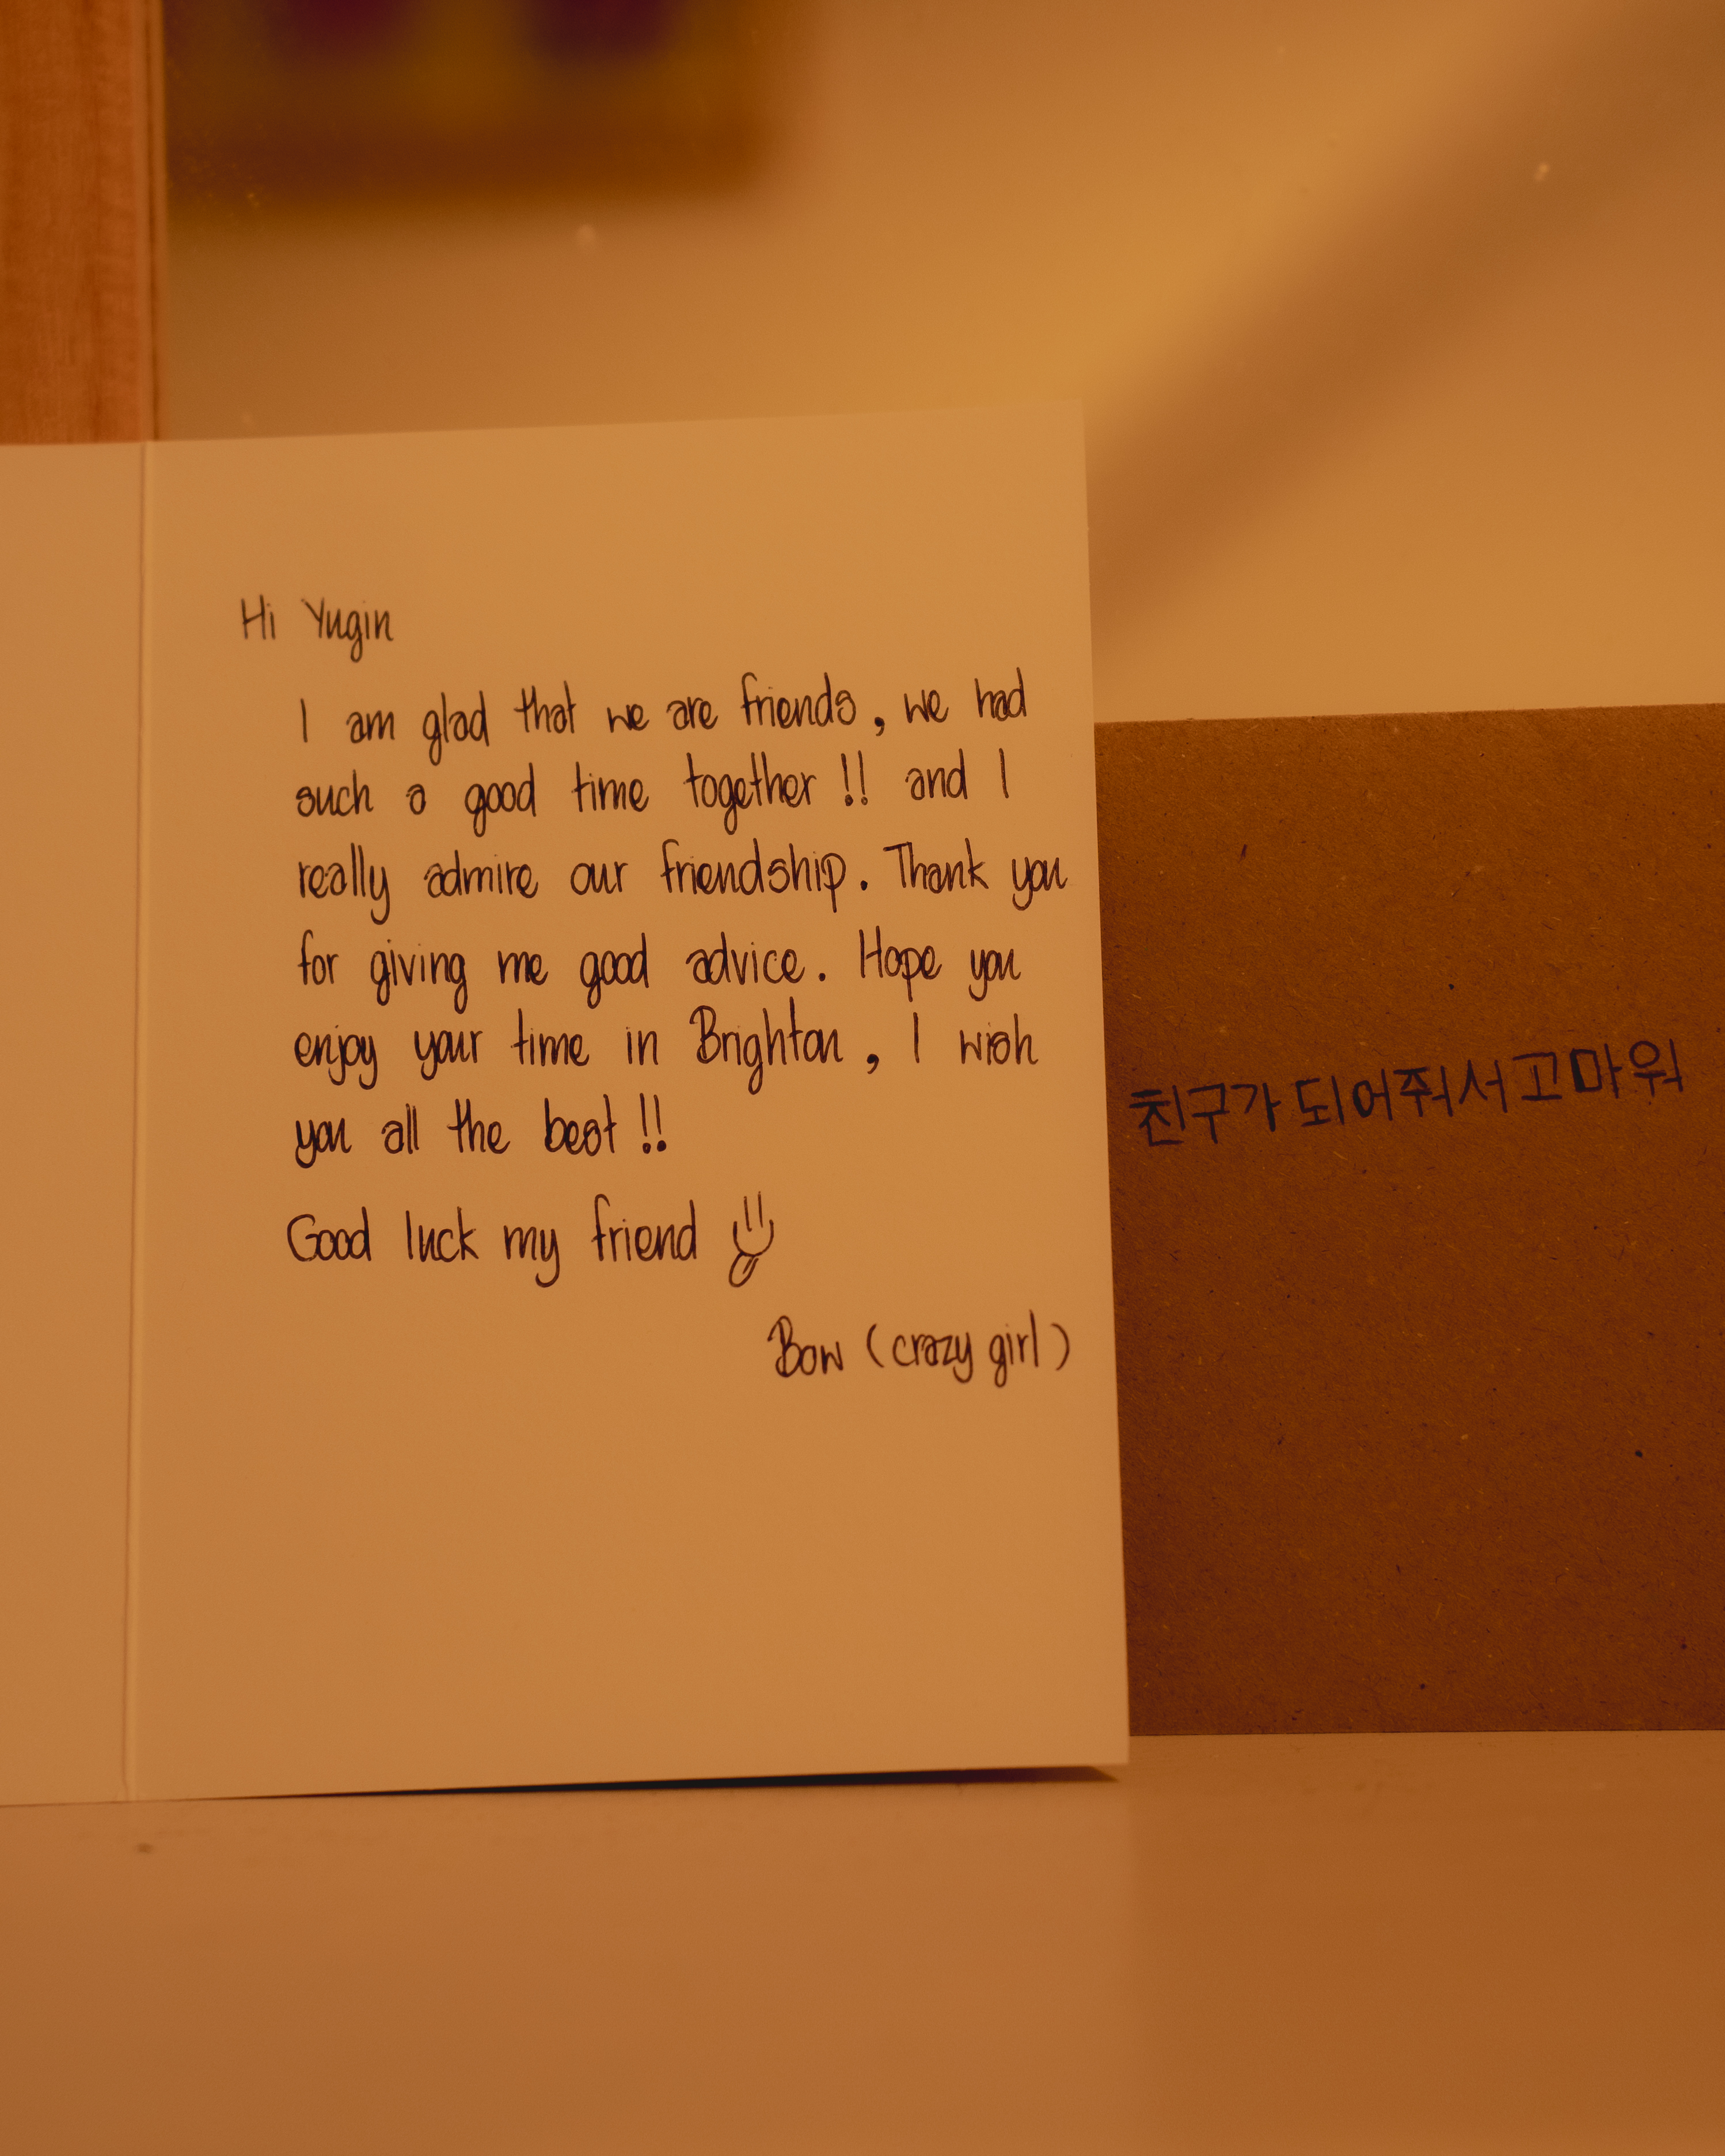 Hi Yugin
I am glad that we are friends, we had
such a good time together !! and I
really admire our friendship. Thank you
for giving me good advice. Hope you
enjoy your time in Brighton, I wish
you all the best !!
Good luck my friend
Bow (crazy girl)
친구가 되어줘서 고마워